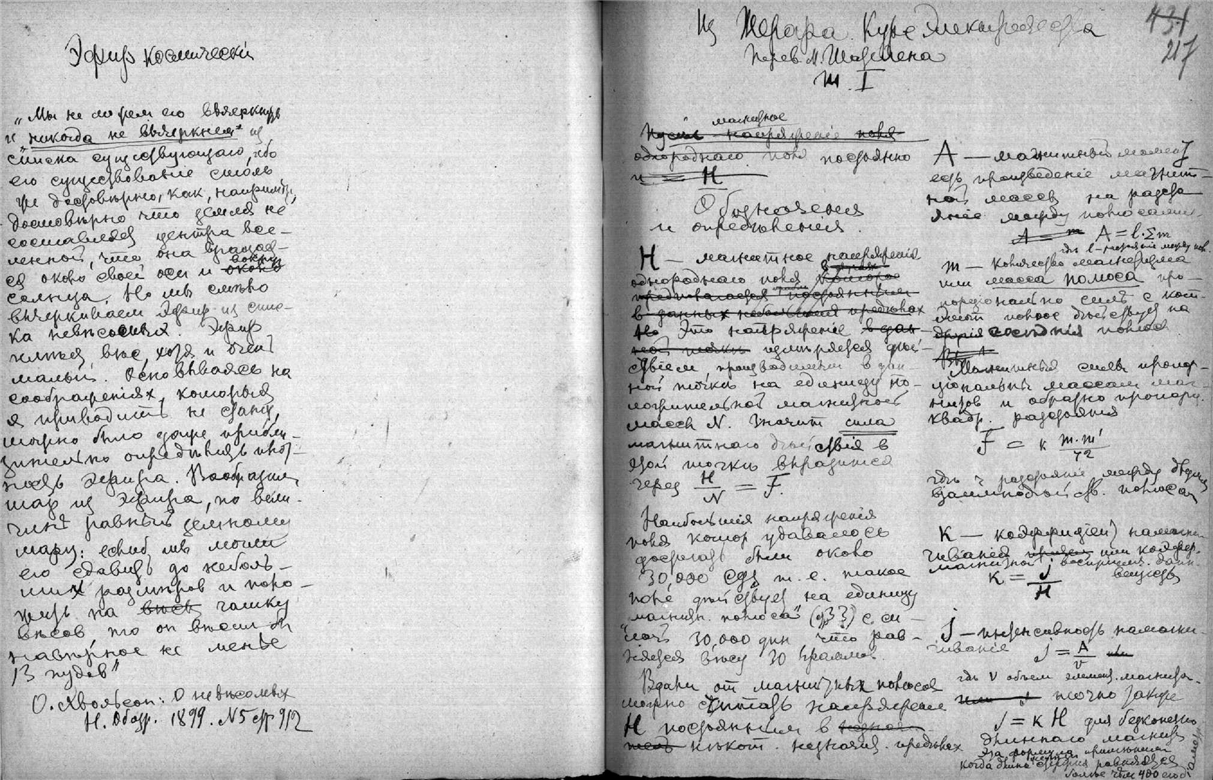 Эфир космическій
„Мы не можем его вычеркнуть
и никогда не вычеркнем" из
списка существующаго, ибо
его существованіе столь
же достовѣрно, как, напримѣр,
достовѣрно что земля не
составляет центра все-
ленной, что она вращает-
ся около своей оси и вокруг
солнца. Но мы смѣло
вычеркиваем Эфир из спис-
ка невѣсомых. Эфир
имѣет вѣс, хотя и очень
малый. Основываясь на
соображеніях, которыя
я приводить не стану,
можно было даже прибли-
зительно опредѣлить плот-
ность Эфира. Вообразим
шар из Эфира, по вели-
чинѣ равный земному
шару; если б мы могли
его сдавить до неболь-
ших размѣров и поло-
жить на чашку
вѣсов, то он вѣсил бы
навѣрное не менѣе
13 пудов"
О. Хвольсон: О невѣсомых
Н. Обозр. 1899. N5 стр. 912
Из Жерара. Курс Электричества
Перев. М. Шателена
т. I
217
магнитное
напряженіе поля
однороднаго поля постоянно
и = H
Обозначения
и опредѣления.
H — магнитное напряженіе
однороднаго поля
предполагается постоянным
в данных предѣлах
Это напряженіе
измѣряется дѣй-
ствіем производимым в дан-
ной точкѣ на единицу по-
ложительной магнитной
массы N. Значит сила
магнитнаго дѣйствія в
этой точкѣ выразится
через H/N = F.
Наибольшія напряженія
поля которых удавалось
достигать были около
30,000 ед., т. е. такое
поле дѣйствует на единицу
„магнитн. полюса" с си-
лой 30,000 дин что рав-
няется вѣсу 30 грамм.
Вдали от магнитных полюсов
можно считать напряжение
H постоянным в
нѣкот. предѣлах
A — магнитный момент
есть произведеніе магнит-
ной массы на разсто-
яніе между полюсами.
A = l.Σm
гдѣ l — разстоян. между пол.
m — Количество магнетизма
или масса полюса про-
порціонально силѣ с кот.
полюс дѣйствует на
другія полюса.
Магнитныя силы пропор-
ціональны массам маг-
нитов и обратно пропорц.
квадр. разстоянія
F = к m.m'/r2
гдѣ r разстояніе между двумя
взаимодѣйств. полюсами
К — коэффиціент намагни-
чиванія или коэффиц.
магнитной воспріимч. данн.
веществ
к = J/H
J — интенсивность намагни-
чиванія J = A/v
гдѣ v объем элемент. магнита.
точно также
J = к H для безконечно
длиннаго магнита
Эта формула примѣнима
когда длина равняется
болѣе чѣм 400 его